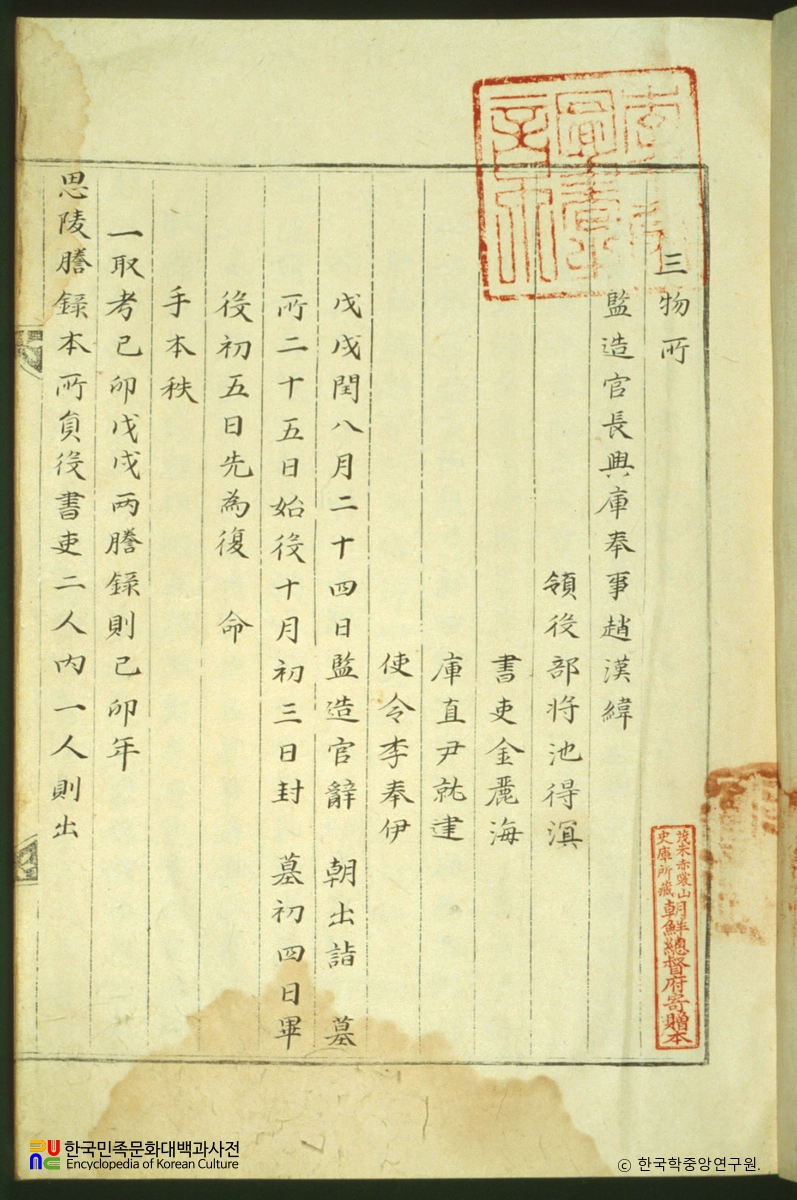 三物所
監造官長興庫奉事趙漢緯
領役部將池得濵
書吏金麗海
庫直尹就建
使令李奉伊
戊戌閏八月二十四日監造官辭 朝出詣 墓
所二十五日始役十月初三日封 墓初四日畢
役初五日先為復 命
手本秩
一取考己卯戊戌兩謄錄則己卯年
思陵謄錄本所負役書吏二人內一人則出
茂朱赤裳山
史庫所藏
朝鮮總督府寄贈本
한국민족문화대백과사전
Encyclopedia of Korean Culture
© 한국학중앙연구원.